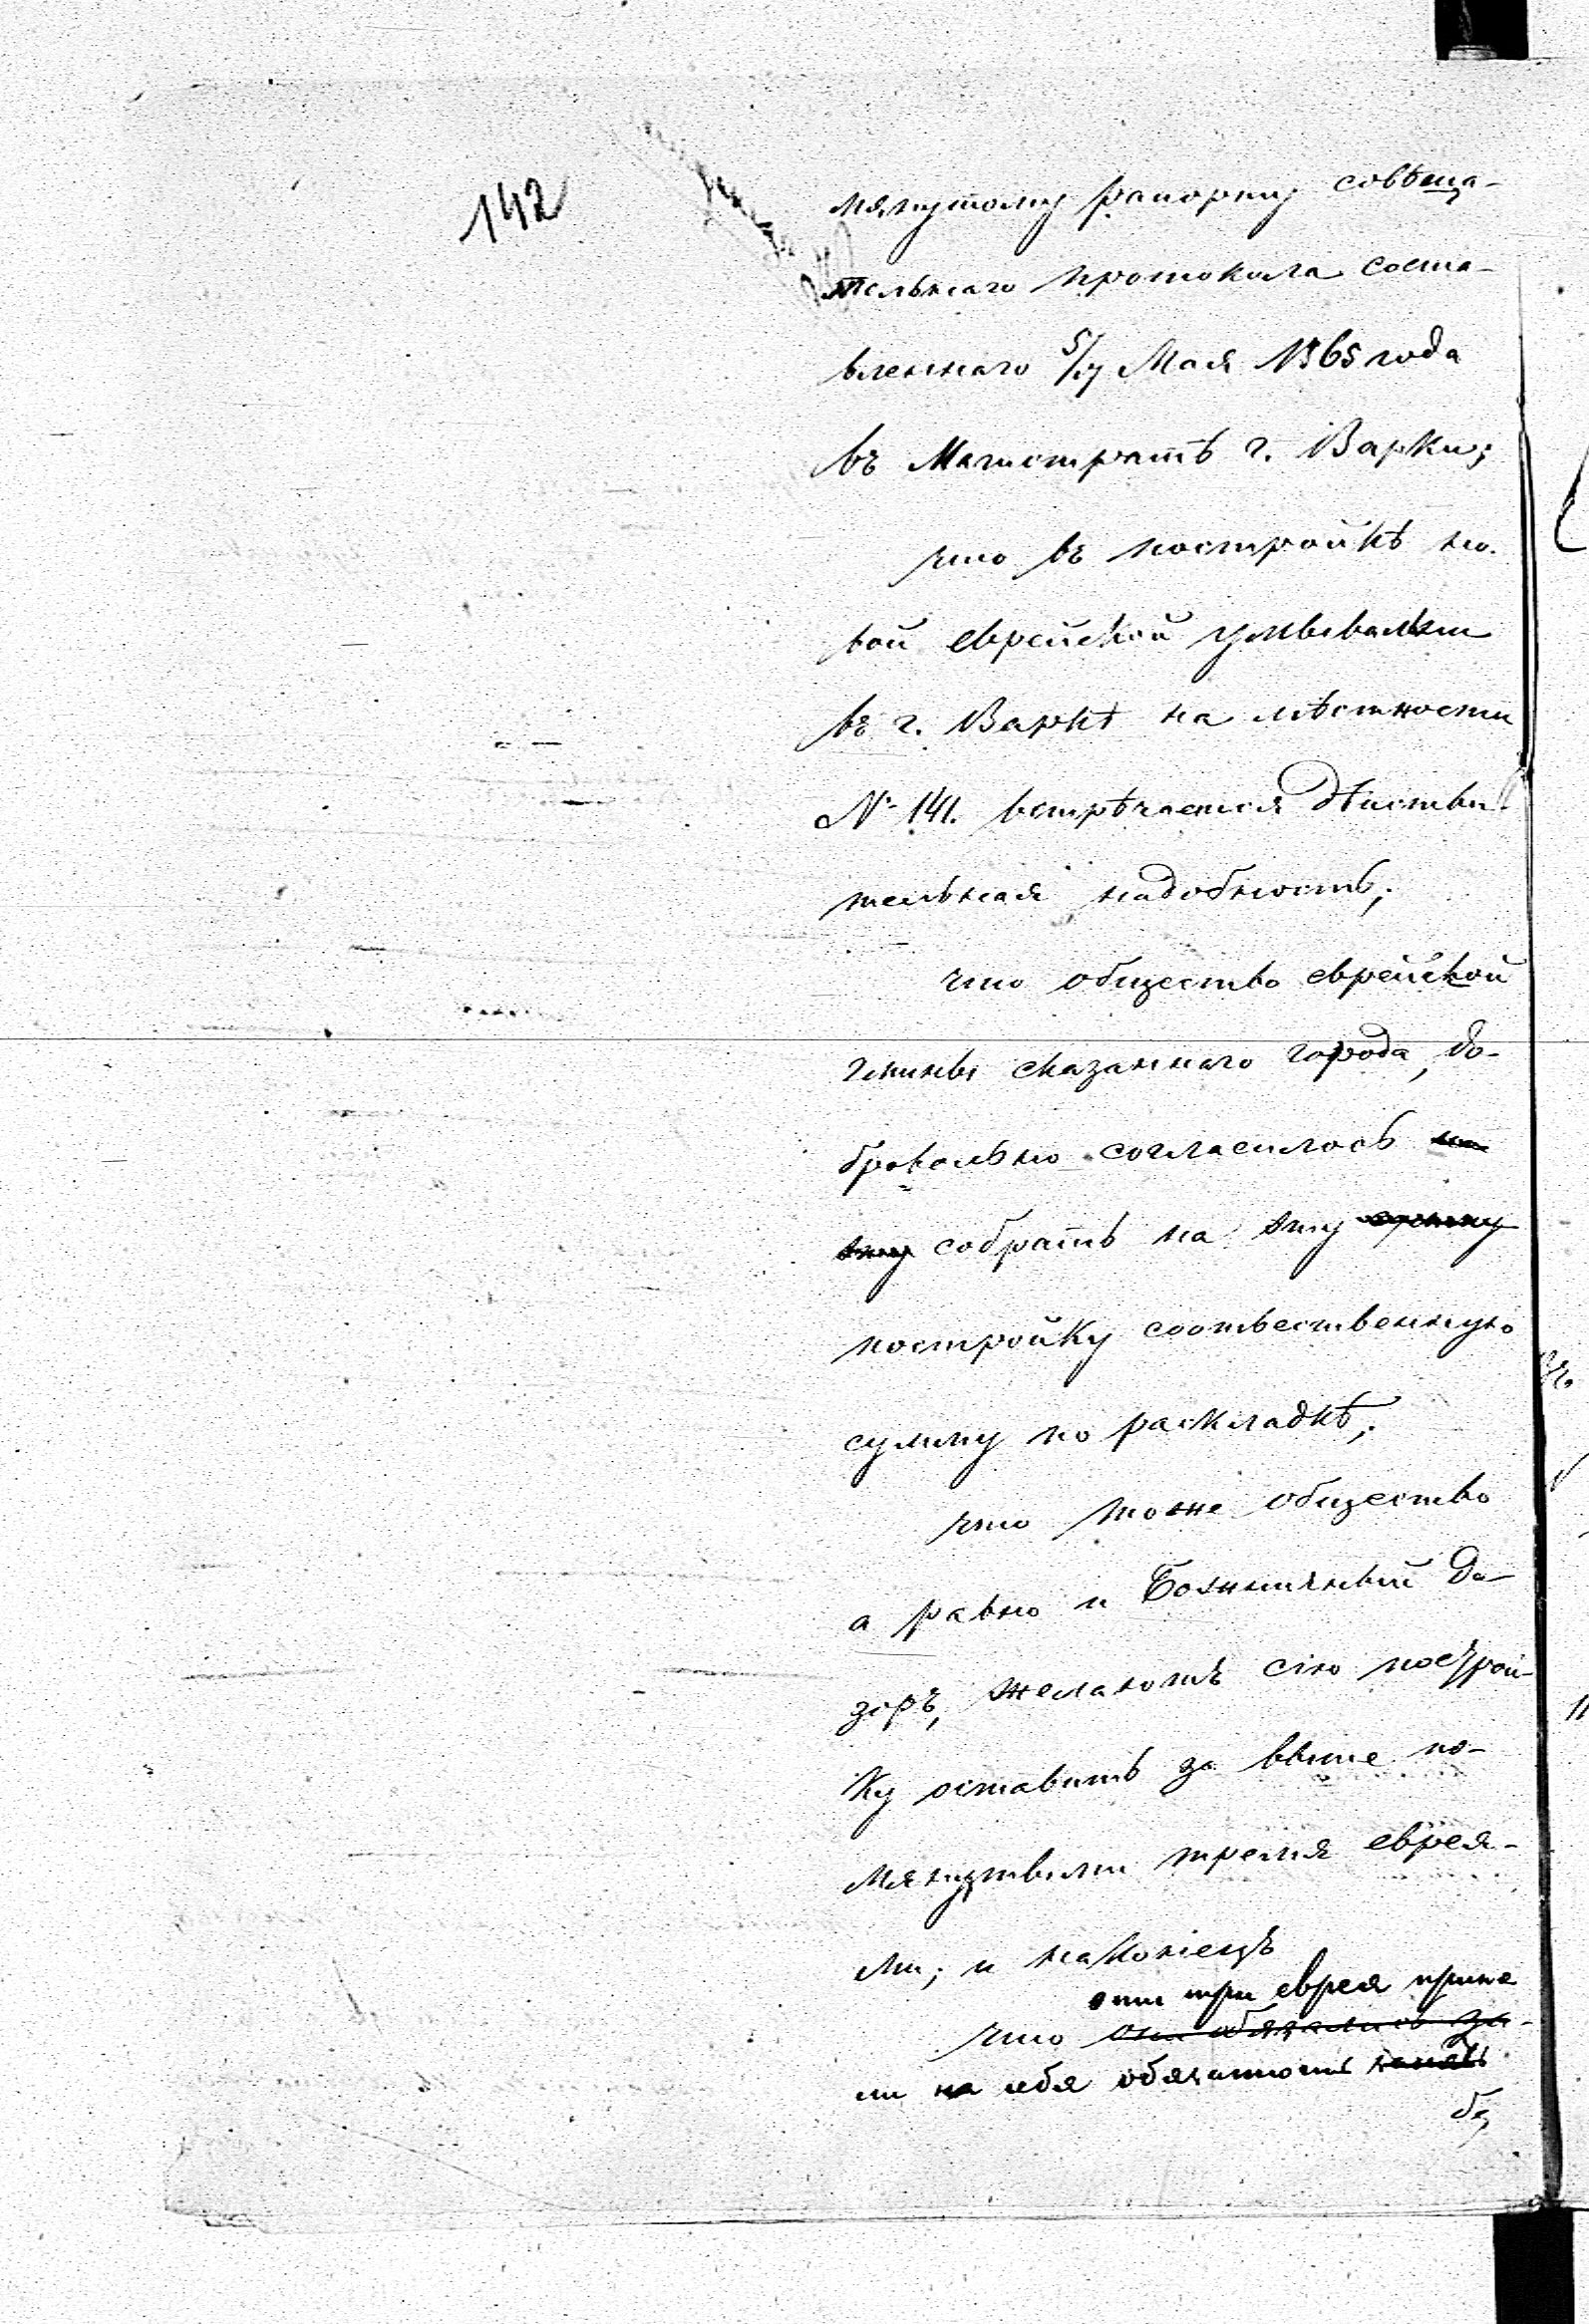 142
мянутому рапорту совѣща-
тельнаго протокола соста-
вленнаго 5/17 Мая 1865 года
въ Магистратѣ г. Варки;
что въ постройкѣ но-
вой еврейской умывальни
въ г. Варкѣ на мѣстности
№ 141. встрѣчается дѣистви-
тельная надобность;
что общество еврейской
гмины сказаннаго города, до-
бровольно согласилось на
эту собрать на эту
постройку соотвественную
сумму по раскладкѣ;
что тоже общество
а равно и Божничный До-
зоръ, желаютъ сію построй-
ку оставить за выше по-
мянутыми тремя еврея-
ми; и наконіецъ
эти три еврея приня
что они обязались за-
ли на себя обязанность